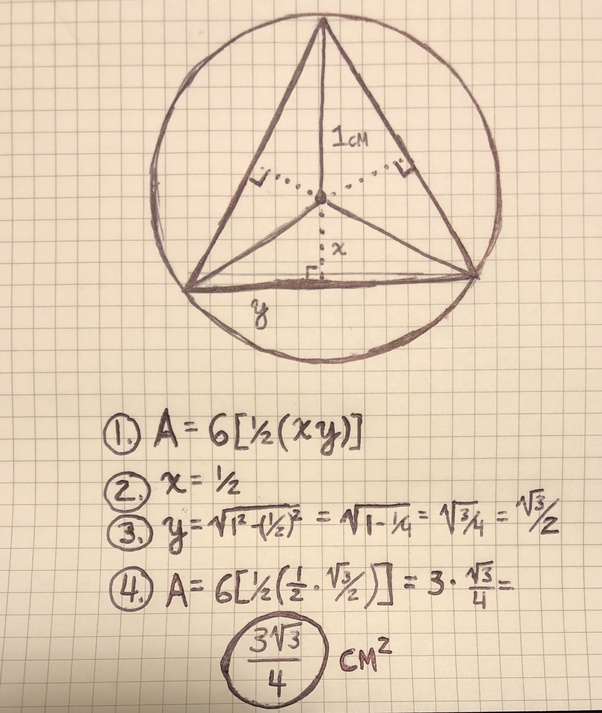 1 cm
x
y
1. A = 6[½(xy)]
2. x = ½
3. y = √1²-(½)² = √1-¼ = √¾ = √3/2
4. A = 6[½(1/2 · √3/2)] = 3 · √3/4 =
3√3/4 cm²